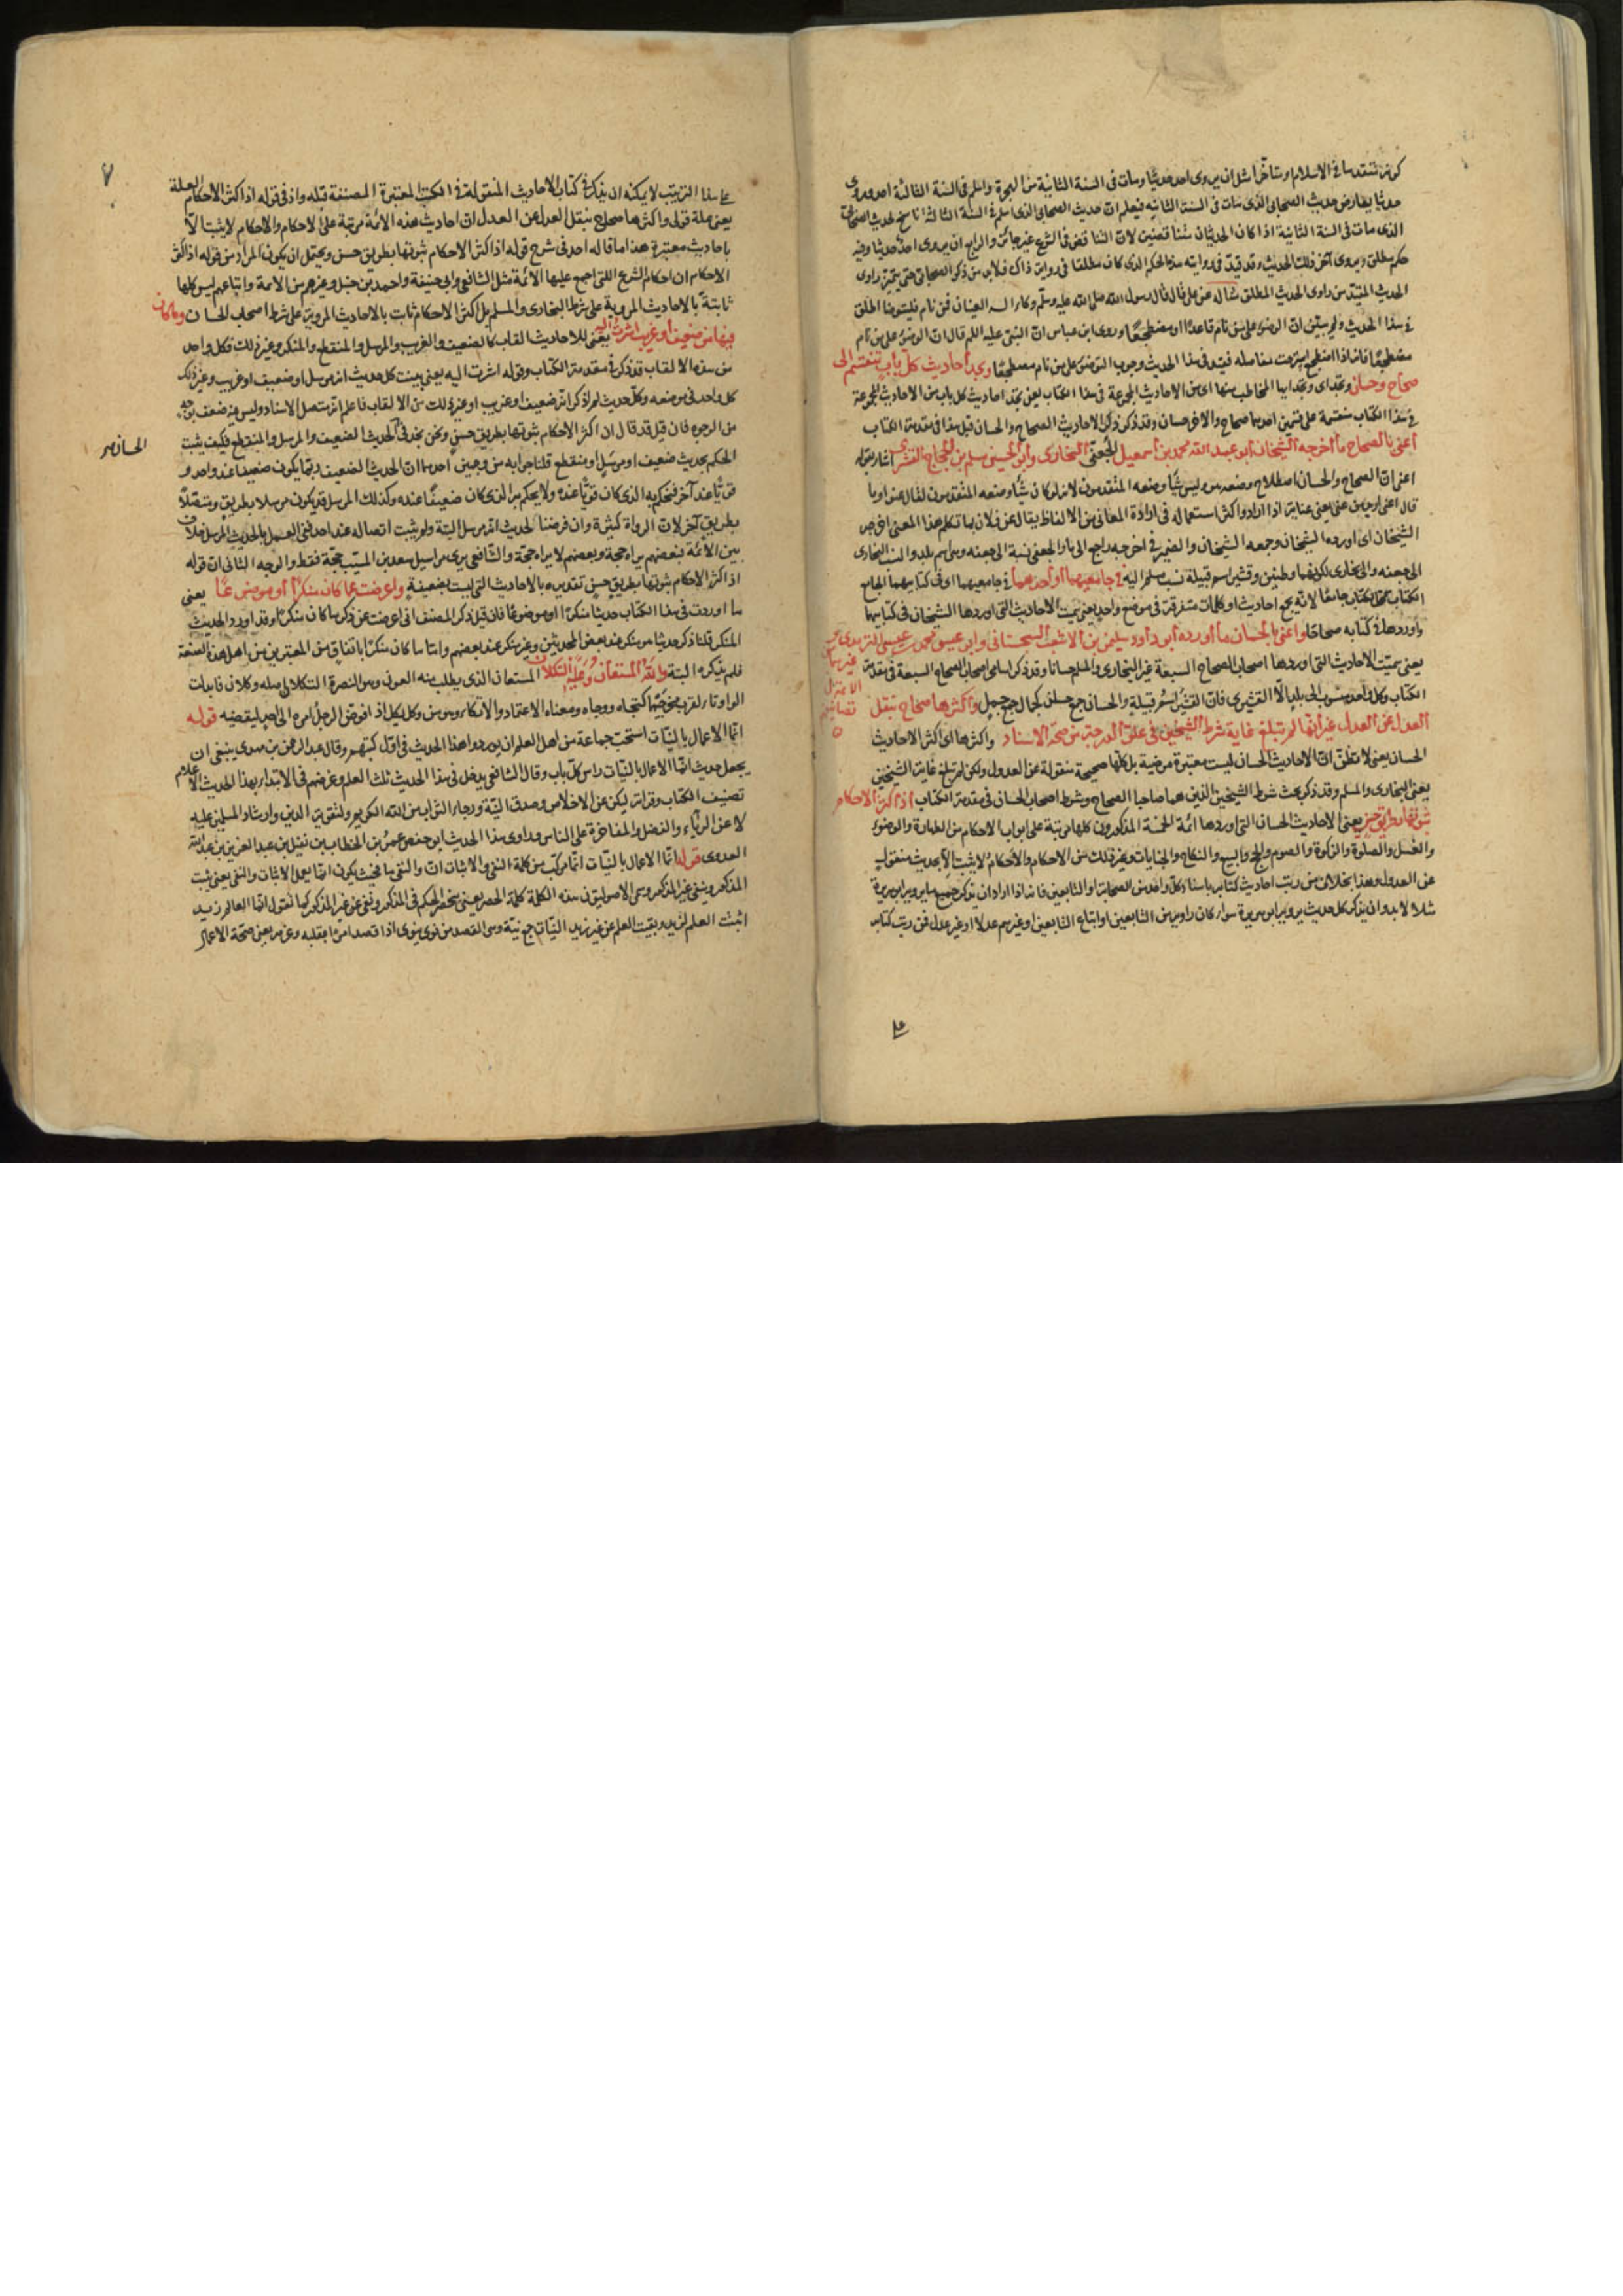 حديثا يعارض حديث الصحابى الذى مات فى السنة الثانية فيعلم ان حديث الصحابى الذى اسلم فى السنة الثالثة ناسخ لحديث الصحابى
الذى مات فى السنة الثانية اذا كان الحديثان متناقضين لان التناقض فى الشرع غير جائز والرابع ان يروى احد حديثا وفيه
حكم مطلق ويروى آخر ذلك الحديث وقد قيد فى روايته هذا الحكم الذى كان مطلقا فى رواية ذاك فلابد من ذكر الصحابى حتى يتميز راوى
الحديث المقيد من راوى الحديث المطلق مثاله عن على قال قال رسول الله صلى الله عليه وسلم وكاء السه العينان فمن نام فليتوضأ اطلق
فى هذا الحديث ولم يبين ان الوضوء على من نام قاعدا او مضطجعا وروى ابن عباس ان النبى عليه السلام قال ان الوضوء على من نام
مضطجعا فانه اذا اضطجع استرخت مفاصله فقيد فى هذا الحديث وجوب التوضئ على من نام مضطجعا وتجد احاديث كل باب تنقسم الى
صحاح وحسان وتجد اى وتجد ايها المخاطب منها اى من الاحاديث المجموعة فى هذا الكتاب يعنى تجد احاديث كل باب من الاحاديث المجموعة
فى هذا الكتاب منقسمة على قسمين احدها صحاح والاخر حسان وقد ذكر ذكر الاحاديث الصحاح والحسان قبل هذا فى مقدمة الكتاب
اعنى بالصحاح ما اخرجه الشيخان ابو عبد الله محمد بن اسمعيل الجعفى البخارى وابو الحسين مسلم بن الحجاج القشيرى اشار بقوله
اعنى ان الصحاح والحسان اصطلاح وضعه هو وليس شيأ وضعه المتقدمون لانه لو كان شيأ وضعه المتقدمون لقال عنوا وما
قال اعنى اريد من عنى يعنى عناية اذا اراد واكثر استعماله فى ارادة المعانى من الالفاظ يقال عنى فلان بما تكلم هذا المعنى اخرجه
الشيخان اى اورده الشيخان وجمعه الشيخان والضمير فى اخرجه راجع الى ما والجعفى نسبة الى جعفه وهو اسم بلد وانسب البخارى
الى جعفه والى بخارى لكونهما وطنين وقشير اسم قبيلة نسب مسلم اليه فى جامعيهما او احدهما فى جامعيهما اى فى كتابيهما الجامع
الكتاب جامعا لانه يجمع احاديث او كلمات متفرقة فى موضع واحد يعنى سميت الاحاديث التى اوردها الشيخان فى كتابيهما
واوردها فى كتابه صحاحا واعنى بالحسان ما اورده ابو داود سليمن بن الاشعث السجستانى وابو عيسى محمد بن عيسى الترمذى و
غيرهما من
الائمة
يعنى سميت الاحاديث التى اوردها اصحاب الصحاح السبعة غير البخارى والمسلم حسانا وقد ذكر اسامى اصحاب الصحاح السبعة فى مقدمة
الكتاب وكل واحد منسوب الى بلد الا القشيرى فان القشير اسم قبيلة والحسان جمع حسن كجمال جمع جميل واكثرها صحاح بنقل
العدل عن العدل غير انها لم تبلغ غاية شرط الشيخين فى علو الدرجة من صحة الاسناد واكثرها اى اكثر الاحاديث
الحسان يعنى لا تظن ان الاحاديث الحسان ليست معتبرة مرضية بل كلها صحيحة منقولة عن العدول ولكن لم تبلغ غاية الشيخين
يعنى البخارى والمسلم وقد ذكر بحث شرط الشيخين الذين هما صاحبا الصحاح وشرط اصحاب الحسان فى مقدمة الكتاب اذ اكثر الاحكام
ثبوتها بطريق حسن يعنى الاحاديث الحسان التى اوردها ائمة الخمسة المذكورون كلها مرتبة على ابواب الاحكام من الطهارة والوضوء
والغسل والصلوة والزكوة والصوم والحج والبيع والنكاح والجنايات وغير ذلك من الاحكام والاحكام لا يثبت الا بحديث منقول
عن العدول وهذا بخلاف من رتب احاديث كتابه باسناد كل واحد من الصحابة او التابعين فانه اذا اراد ان يذكر جميع ما يرويه ابو هريرة
مثلا لابد وان يذكر كل حديث يرويه ابو هريرة سواء كان راويه من التابعين او اتباع التابعين او غيرهم عدلا او غير عدل فمن رتب كتابه
على هذا
٧
على هذا الترتيب لا يمكنه ان يذكر فى كتابه الاحاديث المنقولة فى الكتب المعتبرة المصنفة قبله واذ فى قوله اذ اكثر الاحكام للعلة
يعنى علة قولى واكثرها صحاح بنقل العدل عن العدل ان احاديث هذه الائمة مرتبة على الاحكام والاحكام لا يثبت الا
باحاديث معتبرة هذا ما قاله احد فى شرح قوله اذ اكثر الاحكام ثبوتها بطريق حسن ويحتمل ان يكون المراد من قوله اذ اكثر
الاحكام ان احكام الشرع التى اجمع عليها الائمة مثل الشافعى وابى حنيفة واحمد بن حنبل وغيرهم من الائمة واتباعهم ليس كلها
ثابتة بالاحاديث المروية على شرط البخارى والمسلم بل اكثر الاحكام ثابت بالاحاديث المروية على شرط اصحاب الحسان وما كان
فيها من ضعيف او غريب اشرت اليه يعنى للاحاديث القاب كالضعيف والغريب والمرسل والمنقطع والمنكر وغير ذلك وكل واحد
من هذه الالقاب قد ذكر فى مقدمة الكتاب وقوله اشرت اليه يعنى بينت كل حديث انه مرسل او ضعيف او غريب وغير ذلك
كل واحد فى موضعه وكل حديث لم اذكر انه ضعيف او غريب او غير ذلك من الالقاب فاعلم انه متصل الاسناد وليس فيه ضعف بوجه
من الوجوه فان قيل قد قال ان اكثر الاحكام ثبوتها بطريق حسن ونحن نجد فى الحديث الضعيف والمرسل والمنقطع فكيف يثبت
الحسان
الحكم بحديث ضعيف او مرسل او منقطع قلنا جوابه من وجهين احدهما ان الحديث الضعيف ربما يكون ضعيفا عند واحد و
قويا عند آخر فيحكم به الذى كان قويا عنده ولا يحكم به الذى كان ضعيفا عنده وكذلك المرسل قد يكون مرسلا بطريق ومتصلا
بطريق آخر لان الرواة كثيرة وان فرضنا لحديث انه مرسل البتة ولم يثبت اتصاله عند احد ففى العمل بالحديث المرسل خلاف
بين الائمة فبعضهم يراه حجة وبعضهم لا يراه حجة والشافعى يرى مراسيل سعيد بن المسيب حجة فقط والوجه الثانى ان قوله
اذ اكثر الاحكام ثبوتها بطريق حسن تقديره بالاحاديث التى ليست بضعيفة واعرضت عما كان منكرا او موضوعا يعنى
ما اوردت فى هذا الكتاب حديثا منكرا او موضوعا فان قيل ذكر المصنف انى اعرضت عن ذكر ما كان منكرا وقد اورد الحديث
المنكر قلنا ذكر حديثا هو منكر عند بعض المحدثين وغير منكر عند بعضهم واما ما كان منكرا باتفاق من المعتبرين من اهل هذه الصنعة
فلم يذكره البتة والله المستعان وعليه التكلان المستعان الذى يطلب منه العون وهو النصرة التكلان اصله وكلان فابدلت
الواو تاء لقرب مخرجيهما كتجاه ووجاه ومعناه الاعتماد والاتكاء وهو من وكل يكل اذ افوض الرجل امره الى احد ليقضيه قوله
انما الاعمال بالنيات استحب جماعة من اهل العلم ان يوردوا هذا الحديث فى اول كتبهم وقال عبد الرحمن بن مهدى ينبغى ان
يجعل حديث انما الاعمال بالنيات راس كل باب وقال الشافعى يدخل فى هذا الحديث ثلث العلم وغرضهم فى الابتداء بهذا الحديث الاعلام
تصنيف الكتاب وقراته ليكن عن الاخلاص وصدق النية ورجاء الثواب من الله الكريم ولتقوية الدين وارشاد المسلمين عليه
لا عن الرياء والفضل والمفاخرة على الناس وراوى هذا الحديث ابو حفص عمر بن الخطاب بن نفيل بن عبد العزى بن عبد الله
العدوى قوله انما الاعمال بالنيات انما مركب من كلمة النفى والاثبات ان والنفى ما فحيث يكون انما يعمل الاثبات والنفى يعنى يثبت
المذكور وينفى غير المذكور وسمى الاصوليون هذه الكلمة كلمة الحصر يعنى ينحصر الحكم فى المذكور ونفى عن غير المذكور كما تقول انما العالم زيد
اثبت العلم لزيد ونفيت العلم عن غير زيد النيات جمع نية وهى القصد من نوى ينوى اذا قصد امرا بقلبه وعزم يعنى صحة الاعمال